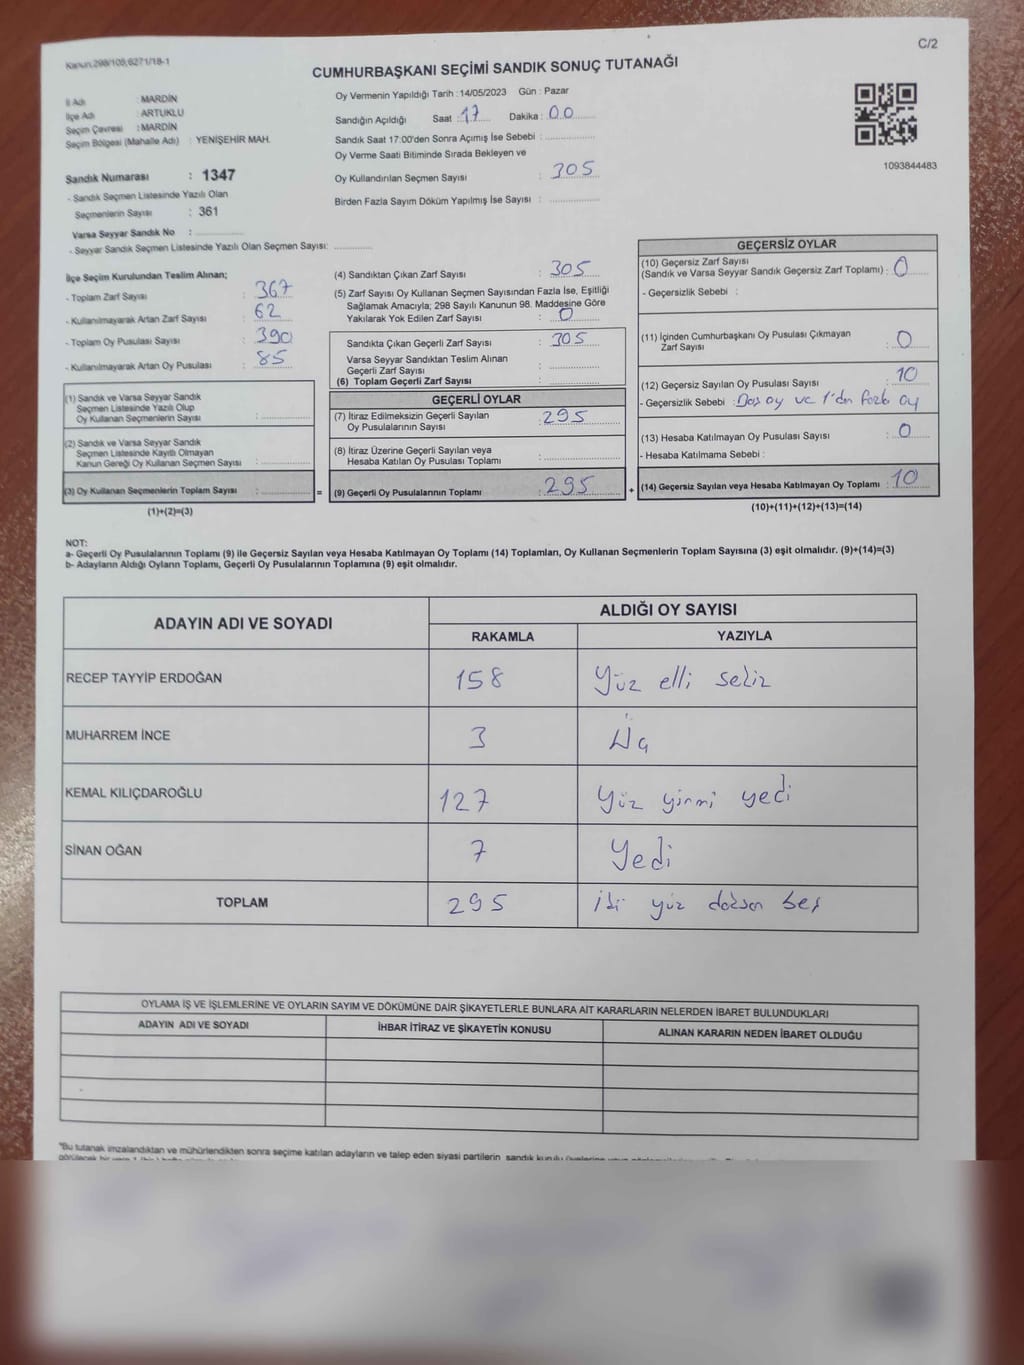 C/2
Kanun,298/105;6271/18-1
CUMHURBAŞKANI SEÇİMİ SANDIK SONUÇ TUTANAĞI
İl Adı : MARDİN
İlçe Adı : ARTUKLU
Seçim Çevresi : MARDİN
Seçim Bölgesi (Mahalle Adı) : YENİŞEHİR MAH.
Sandık Numarası : 1347
- Sandık Seçmen Listesinde Yazılı Olan
Seçmenlerin Sayısı : 361
Varsa Seyyar Sandık No :
- Seyyar Sandık Seçmen Listesinde Yazılı Olan Seçmen Sayısı:
Oy Vermenin Yapıldığı Tarih : 14/05/2023 Gün : Pazar
Sandığın Açıldığı Saat : 17 Dakika : 00
Sandık Saat 17:00'den Sonra Açımış İse Sebebi :
Oy Verme Saati Bitiminde Sırada Bekleyen ve
Oy Kullandırılan Seçmen Sayısı : 305
Birden Fazla Sayım Döküm Yapılmış İse Sayısı :
1093844483
İlçe Seçim Kurulundan Teslim Alınan;
- Toplam Zarf Sayısı : 367
- Kullanılmayarak Artan Zarf Sayısı : 62
- Toplam Oy Pusulası Sayısı : 390
- Kullanılmayarak Artan Oy Pusulası : 85
(1) Sandık ve Varsa Seyyar Sandık
Seçmen Listesinde Yazılı Olup
Oy Kullanan Seçmenlerin Sayısı :
(2) Sandık ve Varsa Seyyar Sandık
Seçmen Listesinde Kayıtlı Olmayan
Kanun Gereği Oy Kullanan Seçmen Sayısı :
(3) Oy Kullanan Seçmenlerin Toplam Sayısı :
(1)+(2)=(3)
(4) Sandıktan Çıkan Zarf Sayısı : 305
(5) Zarf Sayısı Oy Kullanan Seçmen Sayısından Fazla İse, Eşitliği
Sağlamak Amacıyla; 298 Sayılı Kanunun 98. Maddesine Göre
Yakılarak Yok Edilen Zarf Sayısı : 0
Sandıkta Çıkan Geçerli Zarf Sayısı : 305
Varsa Seyyar Sandıktan Teslim Alınan
Geçerli Zarf Sayısı :
(6) Toplam Geçerli Zarf Sayısı :
GEÇERLİ OYLAR
(7) İtiraz Edilmeksizin Geçerli Sayılan
Oy Pusulalarının Sayısı : 295
(8) İtiraz Üzerine Geçerli Sayılan veya
Hesaba Katılan Oy Pusulası Toplamı :
= (9) Geçerli Oy Pusulalarının Toplamı : 295
GEÇERSİZ OYLAR
(10) Geçersiz Zarf Sayısı
(Sandık ve Varsa Seyyar Sandık Geçersiz Zarf Toplamı) : 0
- Geçersizlik Sebebi :
(11) İçinden Cumhurbaşkanı Oy Pusulası Çıkmayan
Zarf Sayısı : 0
(12) Geçersiz Sayılan Oy Pusulası Sayısı : 10
- Geçersizlik Sebebi : Boş oy ve 1'den fazla oy
(13) Hesaba Katılmayan Oy Pusulası Sayısı : 0
- Hesaba Katılmama Sebebi :
+ (14) Geçersiz Sayılan veya Hesaba Katılmayan Oy Toplamı : 10
(10)+(11)+(12)+(13)=(14)
NOT:
a- Geçerli Oy Pusulalarının Toplamı (9) ile Geçersiz Sayılan veya Hesaba Katılmayan Oy Toplamı (14) Toplamları, Oy Kullanan Seçmenlerin Toplam Sayısına (3) eşit olmalıdır. (9)+(14)=(3)
b- Adayların Aldığı Oyların Toplamı, Geçerli Oy Pusulalarının Toplamına (9) eşit olmalıdır.
ADAYIN ADI VE SOYADI ALDIĞI OY SAYISI
RAKAMLA YAZIYLA
RECEP TAYYİP ERDOĞAN 158 Yüz elli sekiz
MUHARREM İNCE 3 Üç
KEMAL KILIÇDAROĞLU 127 Yüz yirmi yedi
SİNAN OĞAN 7 Yedi
TOPLAM 295 iki yüz doksan beş
OYLAMA İŞ VE İŞLEMLERİNE VE OYLARIN SAYIM VE DÖKÜMÜNE DAİR ŞİKAYETLERLE BUNLARA AİT KARARLARIN NELERDEN İBARET BULUNDUKLARI
ADAYIN ADI VE SOYADI İHBAR İTİRAZ VE ŞİKAYETİN KONUSU ALINAN KARARIN NEDEN İBARET OLDUĞU
*Bu tutanak imzalandıktan ve mühürlendikten sonra seçime katılan adayların ve talep eden siyasi partilerin sandık kurulu